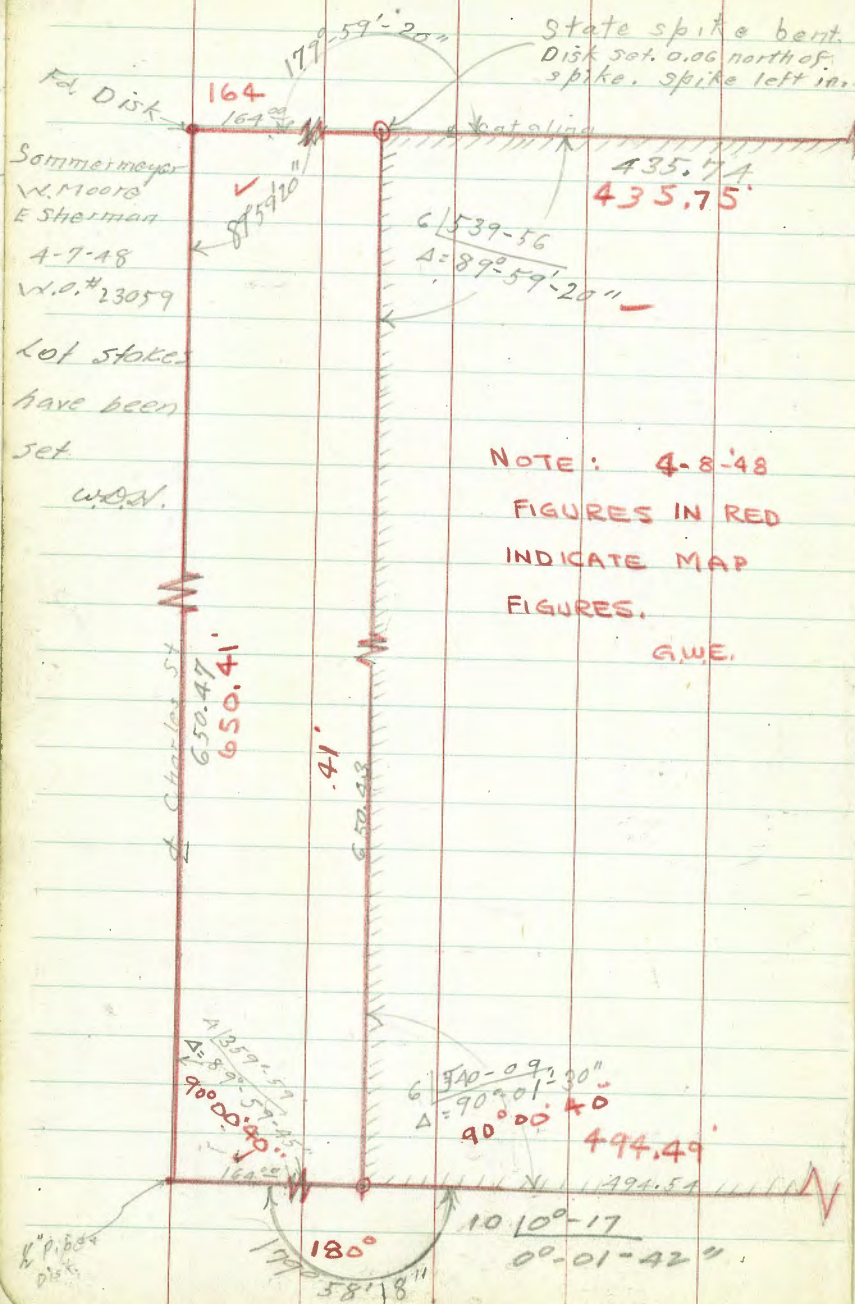 179°-59'-20"
State spike bent.
Disk set. 0.06 north of
spike. Spike left in.
Fd. Disk
164
164.00
Catalina
435.74
435.75'
Sommermeyer
W. Moore
E Sherman
4-7-48
W.O. #23059
89°59'20"
6 | 539-56
Δ = 89°-59'-20"
Lot stakes
have been
set
NOTE: 4-8-'48
FIGURES IN RED
INDICATE MAP
FIGURES.
G.W.E.
℄ Charles St
650.47
650.41'
.41'
650.43
4 | 359°-59
Δ = 89°-59'-45"
90°00'40"
6 | 540-09
Δ = 90°-01'-30"
90°00'40"
494.49'
164.00
494.54
10 | 0°-17
0°-01'-42"
180°
179° 58' 18"
Disk